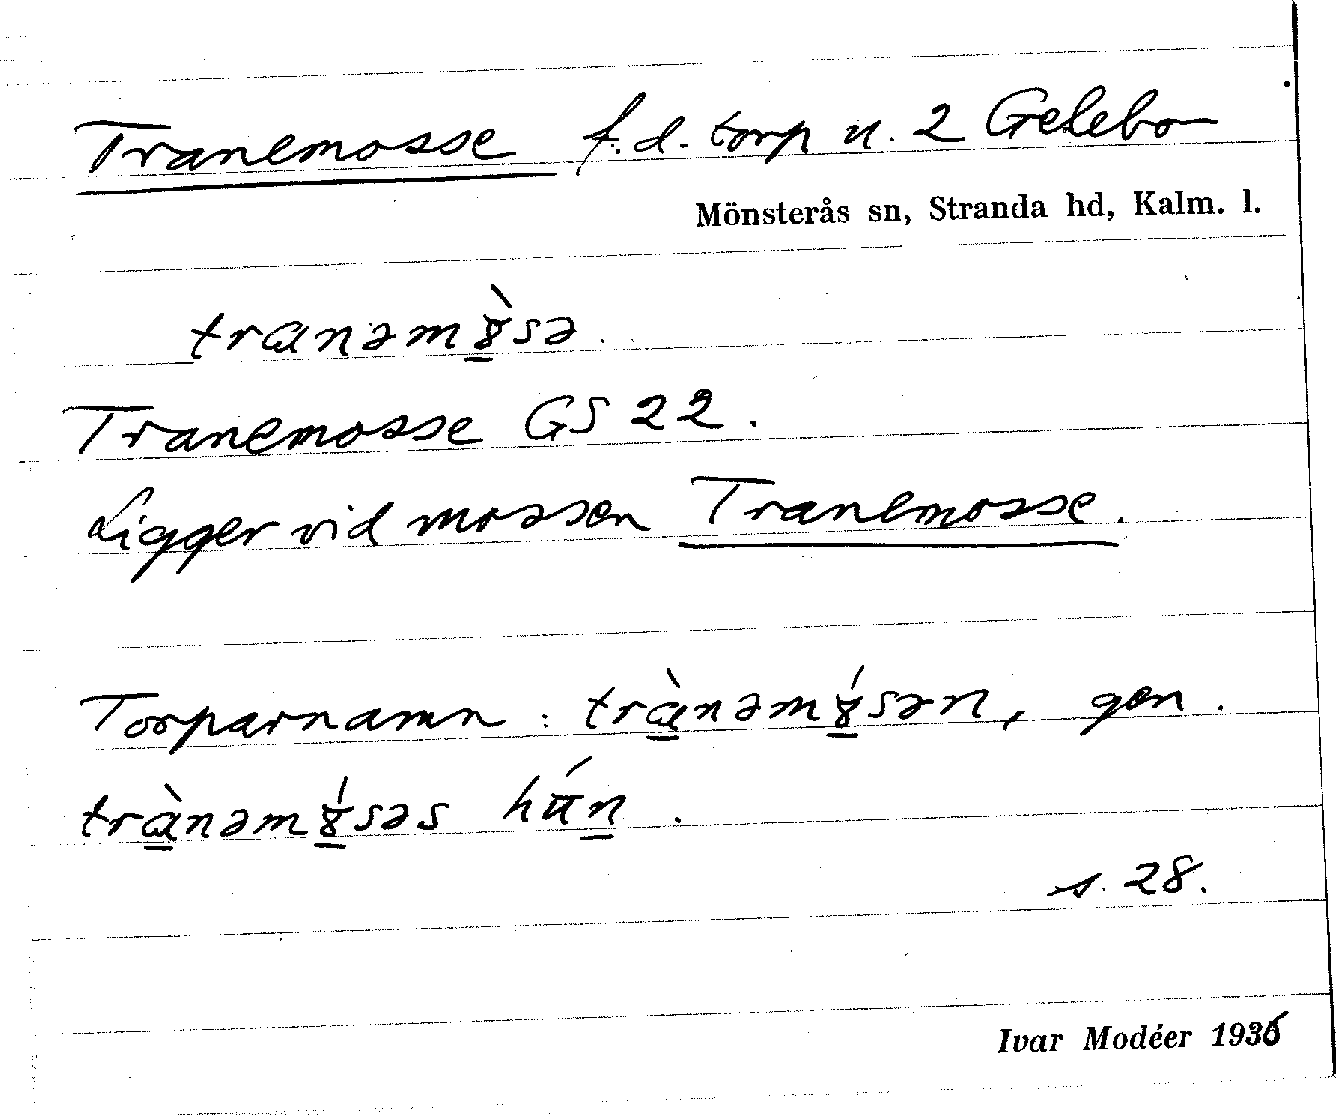 Tranemosse f.d. torp u. 2 Gelebo
Mönsterås sn, Stranda hd, Kalm. l.
tranəmɣ̠̀sə.
Tranemosse GS 22.
Ligger vid mossen Tranemosse.
Torparnamn: trà̠nəmɣ̠́sən, gen.
trà̠nəmɣ̠́səs hʉ́n̠.
s. 28.
Ivar Modéer 1936